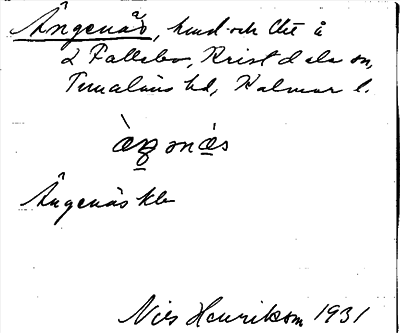 Ängenäs, hmd och lht å
2 Fallebo, Kristdala sn,
Tunaläns hd, Kalmar l.
Ängenäs kle
Nils Henrikson 1931